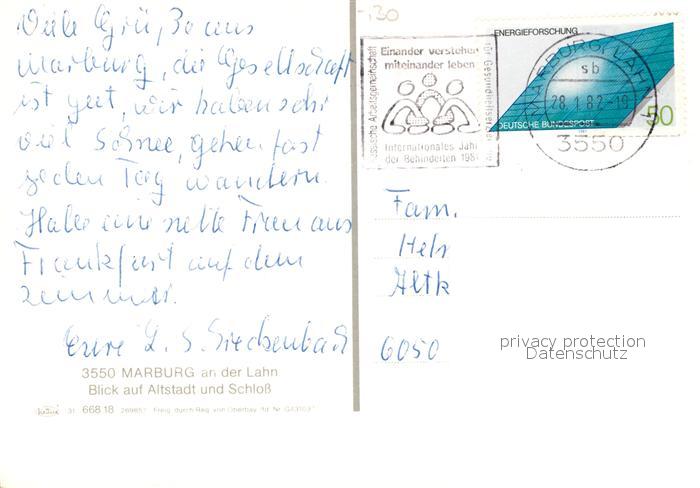 Viele Grüße aus
Marburg, die Gesellschaft
ist gut, wir haben sehr
viel Schnee, gehen fast
jeden Tag wandern.
Habe eine nette Frau aus
Frankfurt auf dem
Zimmer.
Eure L. S.
3550 MARBURG an der Lahn
Blick auf Altstadt und Schloß
31 668 18
-,30
Einander verstehen
miteinander leben
Internationales Jahr
der Behinderten 1981
ENERGIEFORSCHUNG
DEUTSCHE BUNDESPOST
50
MARBURG, LAHN 1
sb
28.1.82-19
3550
Fam.
6050
privacy protection
Datenschutz